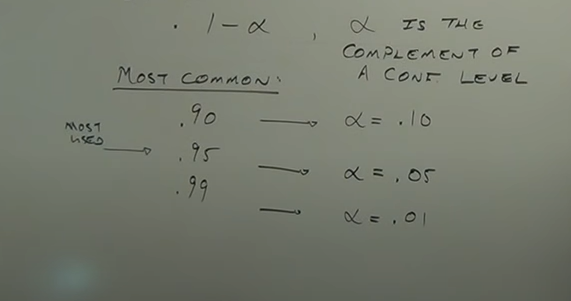 . 1 - α , α IS THE
COMPLEMENT OF
A CONF LEVEL
MOST COMMON:
.90 → α = .10
MOST
USED → .95 → α = .05
.99 → α = .01